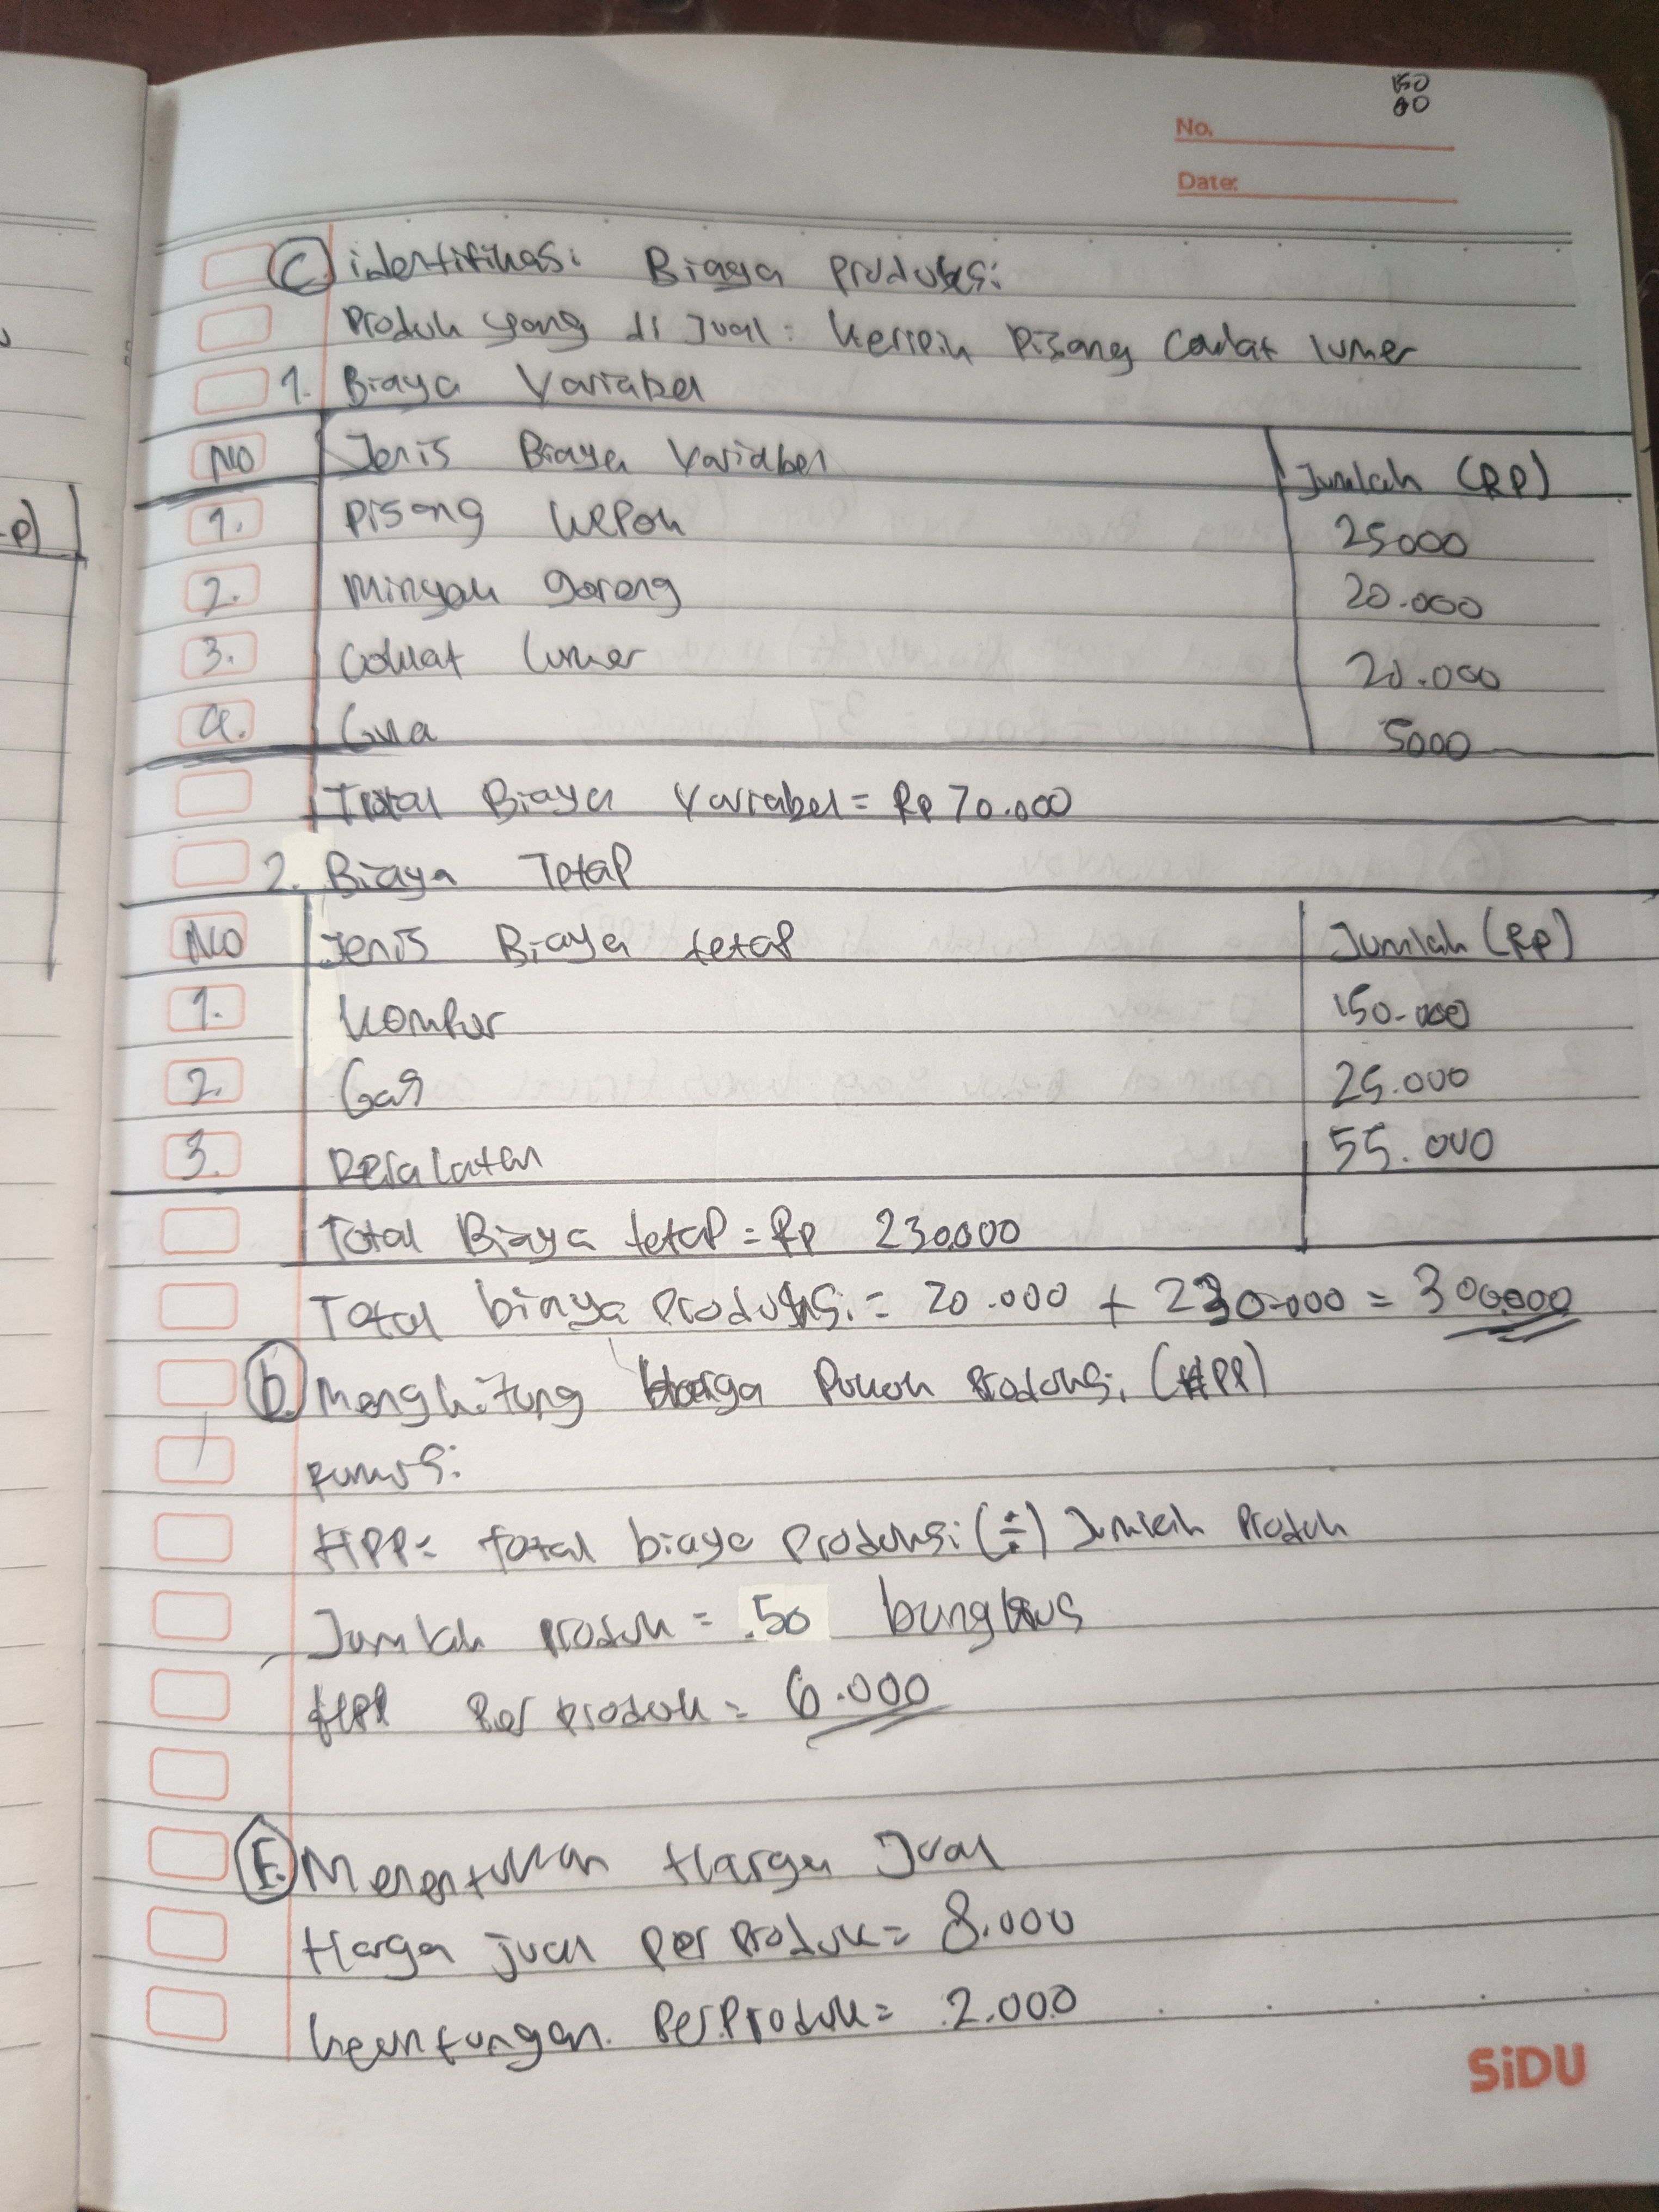 150
60
No.
Date:
C. identifikasi Biaya Produksi
Produk yang di jual: keripik Pisang Coklat lumer
1. Biaya Variabel
NO Jenis Biaya Variabel Jumlah (RP)
1. Pisang kepok 25000
2. Minyak goreng 20.000
3. Coklat lumer 20.000
4. Gula 5000
Total Biaya Variabel = Rp 70.000
2. Biaya Tetap
NO Jenis Biaya tetap Jumlah (Rp)
1. kompor 150.000
2. Gas 25.000
3. Peralatan 55.000
Total Biaya tetap = Rp 230.000
Total biaya Produksi = 70.000 + 230.000 = 300.000
D. Menghitung Harga Pokok Produksi (HPP)
Rumus:
HPP = total biaya Produksi (÷) Jumlah Produk
Jumlah Produk = 50 bungkus
HPP Per produk = 6.000
E. Menentukan Harga Jual
Harga jual per Produk = 8.000
keuntungan Per Produk = 2.000
SiDU
-P)